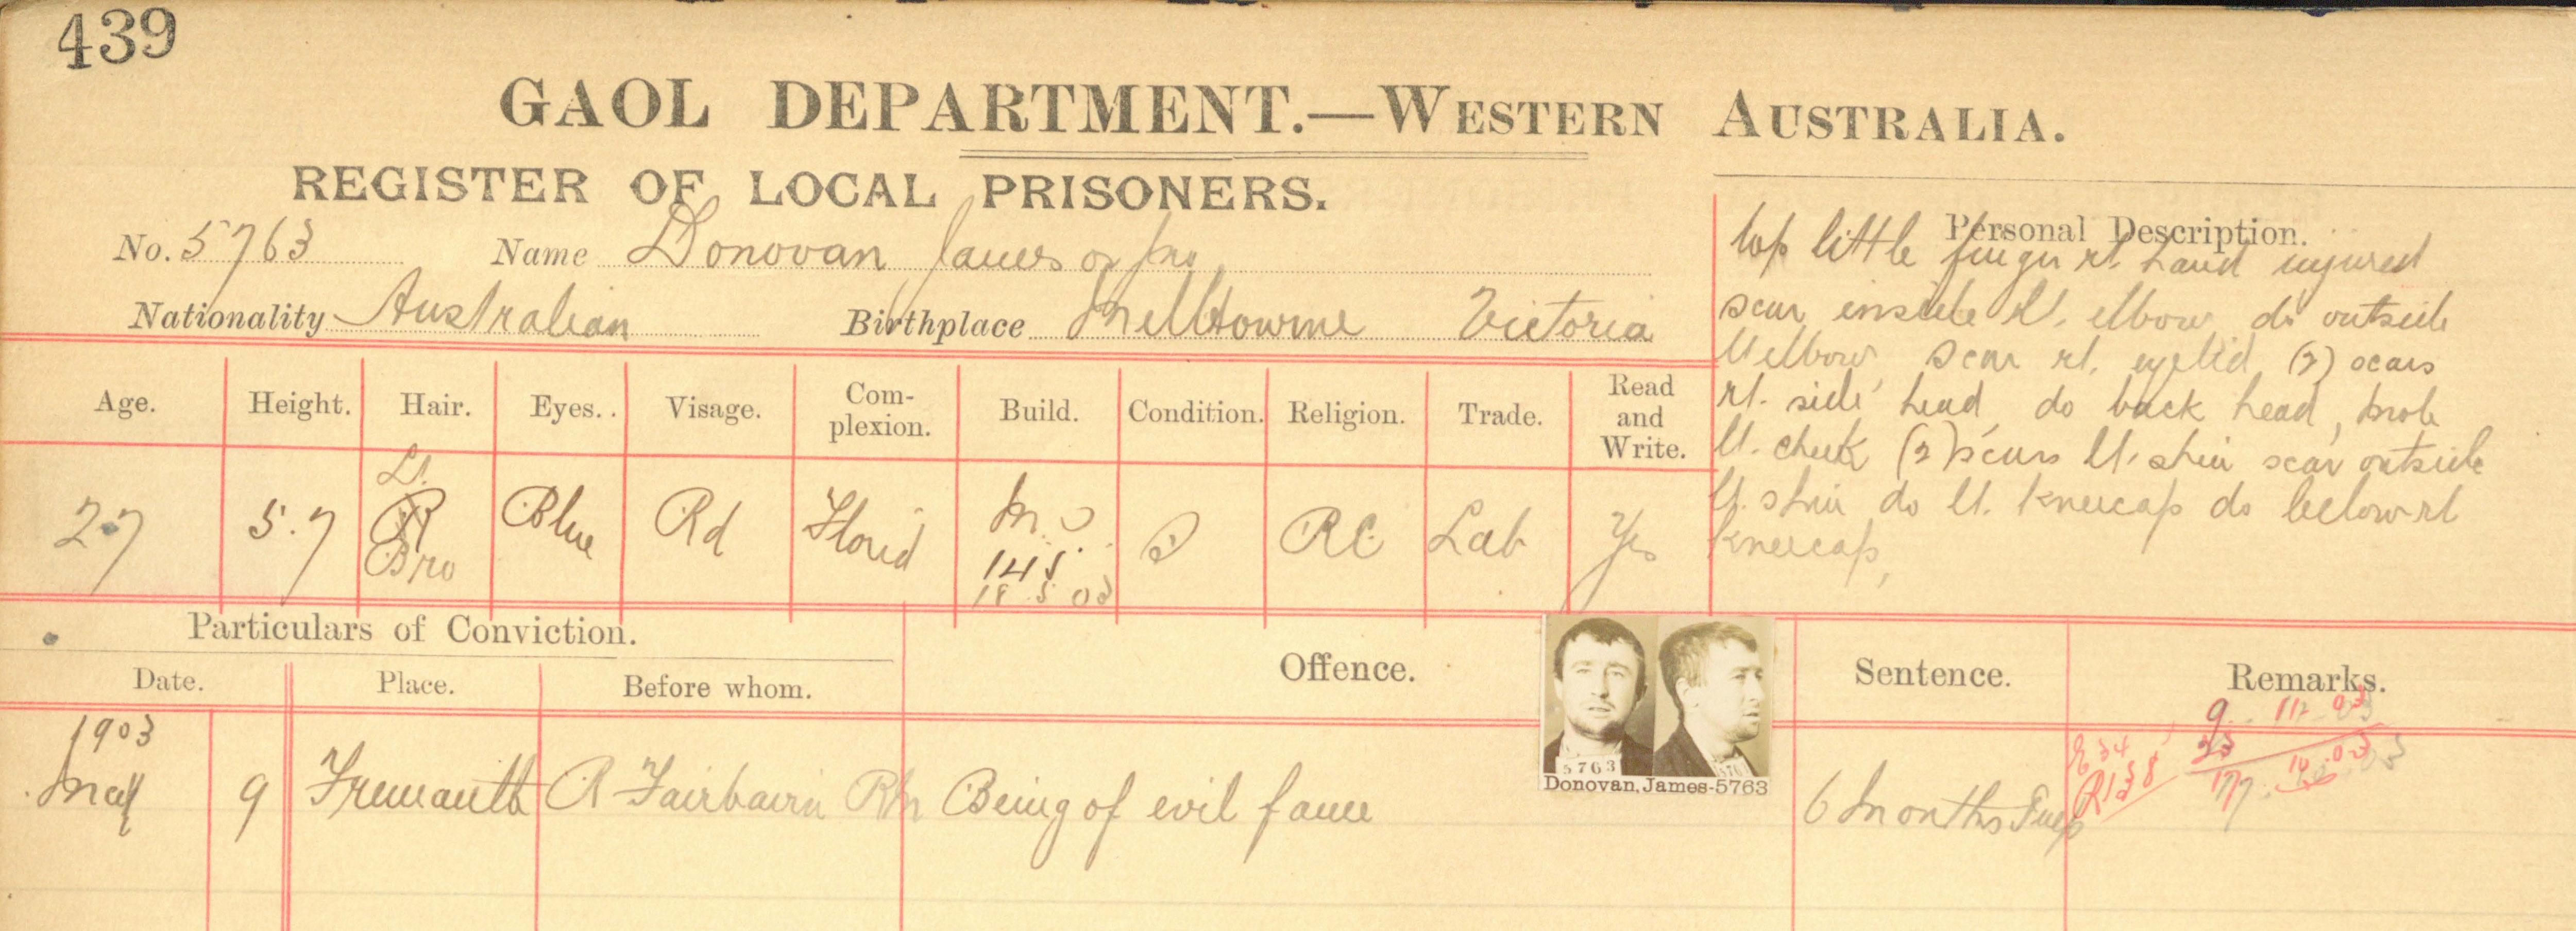 439
GAOL DEPARTMENT.—WESTERN AUSTRALIA.
REGISTER OF LOCAL PRISONERS.
No. 5763 Name Donovan James or Jno
Nationality Australian Birthplace Melbourne Victoria
Personal Description.
top little finger rt. hand injured
scar inside lt. elbow do outside
lt elbow, scar rt. eyelid (2) scars
rt. side head do back head, mole
lt. cheek (2) scars lt. shin scar outside
lt. shin do lt. kneecap do below rt
kneecap,
Age. Height. Hair. Eyes. Visage. Com-plexion. Build. Condition. Religion. Trade. Read and Write.
27 5.7 Lt. Bro Blue Rd Florid 145 RC Lab Yes
18 5 03
Particulars of Conviction. Offence. Sentence. Remarks.
Date. Place. Before whom.
1903
May 9 Fremantle R Fairbairn RM Being of evil fame 6 months
5763
Donovan, James-5763